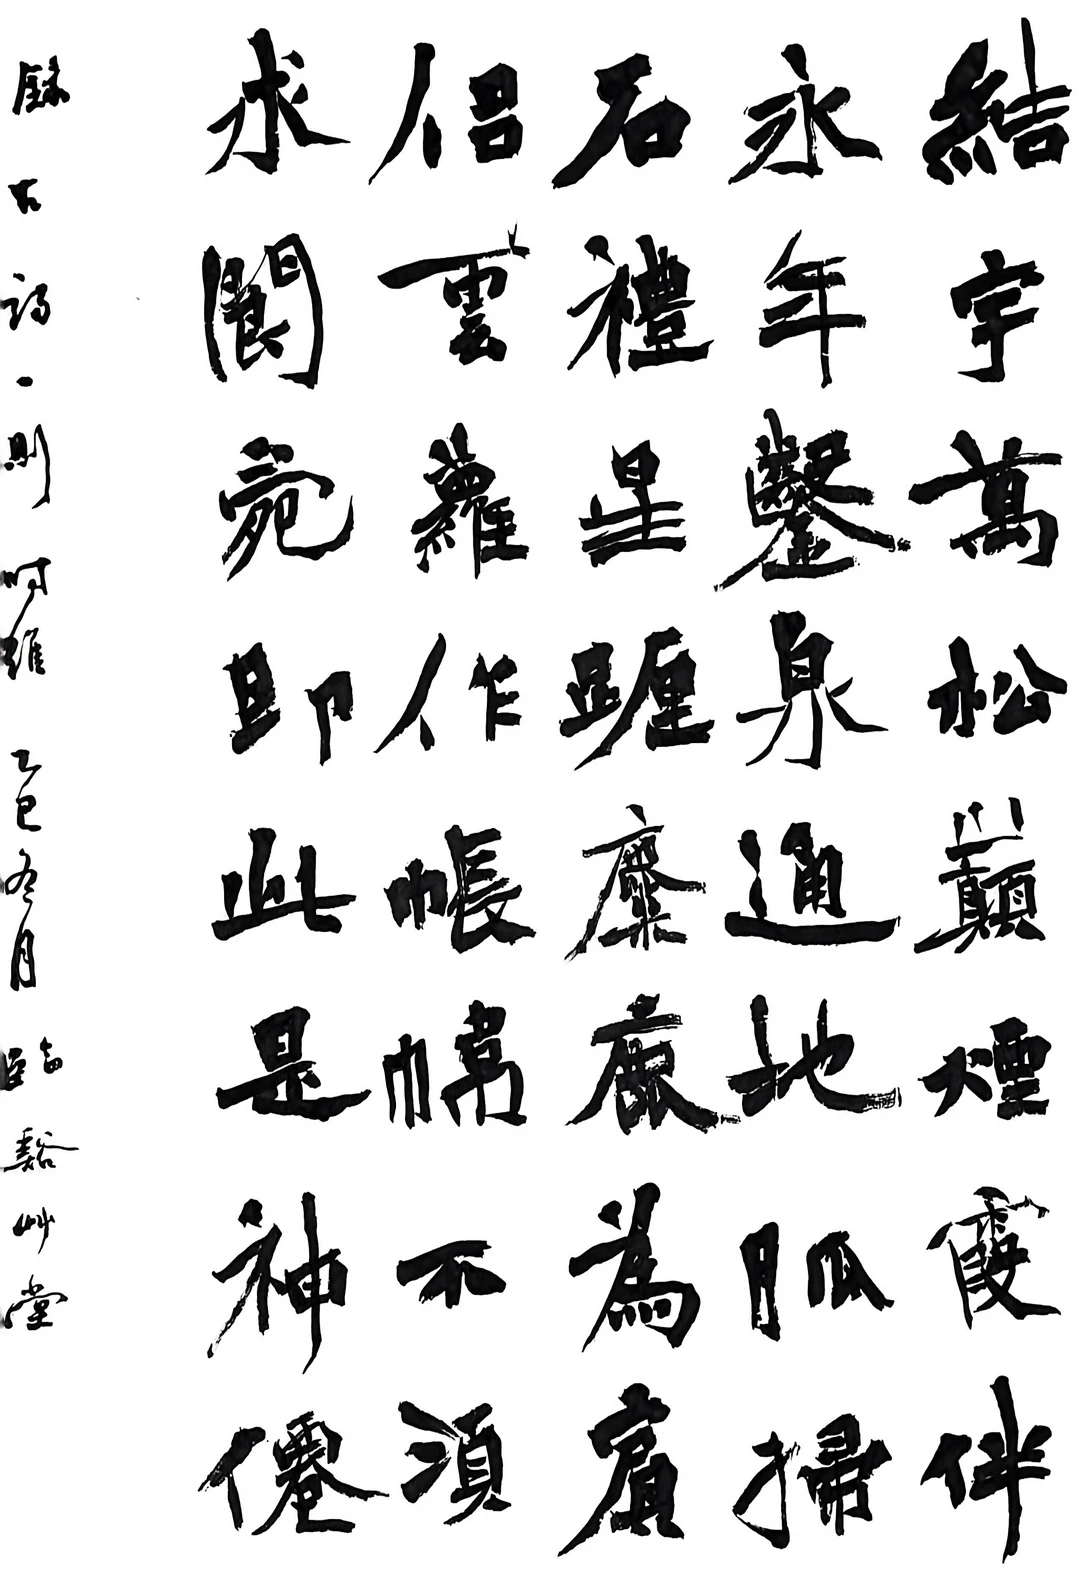 結宇萬松巔煙霞伴
永年鑿泉通地脈掃
石禮星躔麋鹿為賓
侶雲蘿作帳幃不須
求閬苑即此是神僊
錄古詩一則時維乙巳冬月谿艸堂